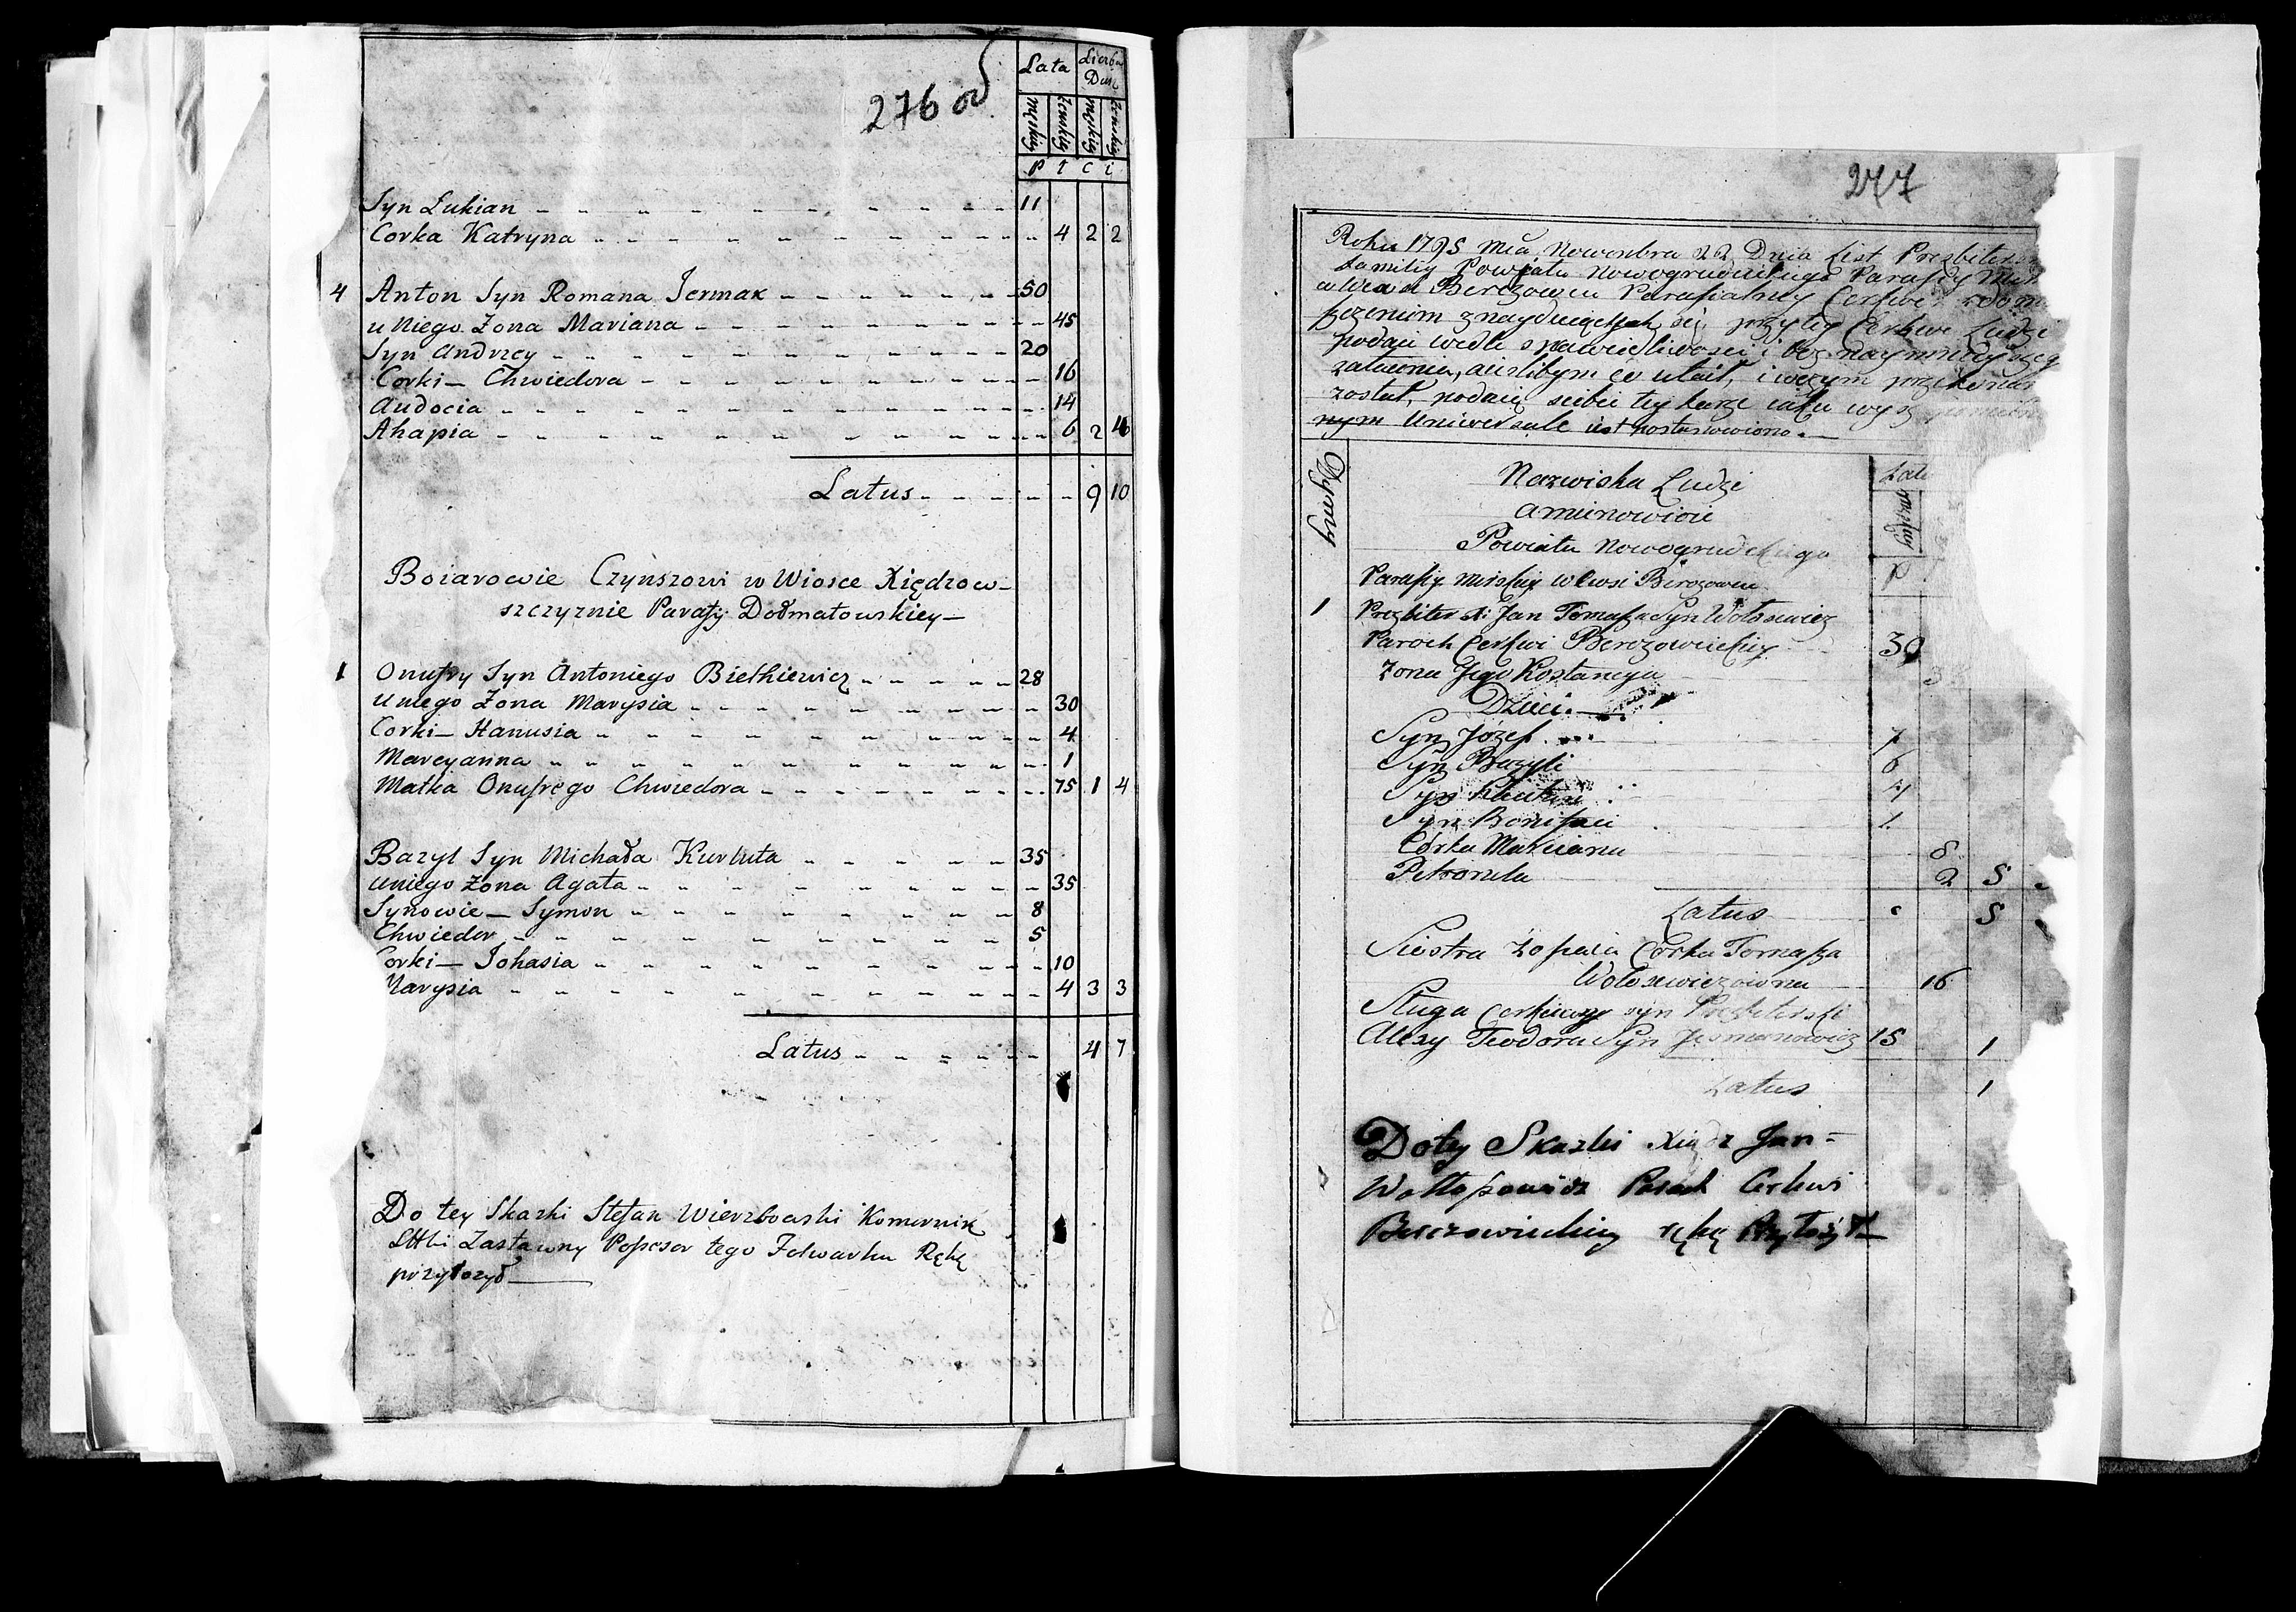 276 od
Lata Liczba Dusz
męskiey żenskiey męskiey żenskiey
P t c i
Syn Łukian 11
Corka Katryna 4 2 2
4 Anton Syn Romana Jermak 50
u Niego Żona Mariana 45
Syn Andrzey 20
Corki Chwiedora 16
Audocia 14
Ahapia 6 2 4
Latus 9 10
Boiarowie Czynszowi w Wiosce Xiędzow-
szczyznie Parafij Dołmatowskiey
1 Onufry Syn Antoniego Biełkiewicz 28
u niego Żona Marysia 30
Corki Hanusia 4
Marcyanna 1
Matka Onufrego Chwiedora 75 1 4
Bazyl Syn Michała Kurłuta 35
u niego Żona Agata 35
Synowie Symon 8
Chwiedor 5
Corki Johasia 10
Marysia 4 3 3
Latus 4 7
Do tey Skazki Stefan Wierzbowski Komornik
Zastawny Possesor tego Folwarku Rękę
przyłozył
277
Roku 1795 Mca Nowenbra 22 Dnia List Prezbiter
Familiy Powiatu Nowogrudzkiego Parafij
Parafialney Cerkwi
znayduięcych się przy tey Cerkwi Ludzi
podaię wedle sprawiedliwosci i bez naymnieyszeg
zataienia, a iezlibym co utaił, i w czym przekonan
został, podaię siebie tey karze iaka wysz
nym Uniwersale iest postanowiono.
Dymy
Nazwiska Ludzi
a mianowicie
Powiatu Nowogrudzkiego
Parafij Mirskiey w Wsi Berozowcu
Lat
męskiey
P
1 Prezbiter X: Jan Tomasza Syn Wołosewicz
Paroch Cerkwi Berezowieckiey 30
Żona Jego Kostancya
Dzieci.
Syn Józef 7
Syn Bazyli 6
Syn 4
Syn Bonifaci 1
Córka Marcianna 8
Petronela 2 5
Latus 5
Siestra Zofieia Corka Tomasza
Wołosewiczowna 16
Sługa Cerkiewny syn Prezbiterski
Alexy Teodora Syn Jusmanowicz 15 1
Latus 1
Do tey Skazki Xiądz Jan
Wołłosowicz Paroch Cerkwi
Berezowieckiey rękę Przyłożył